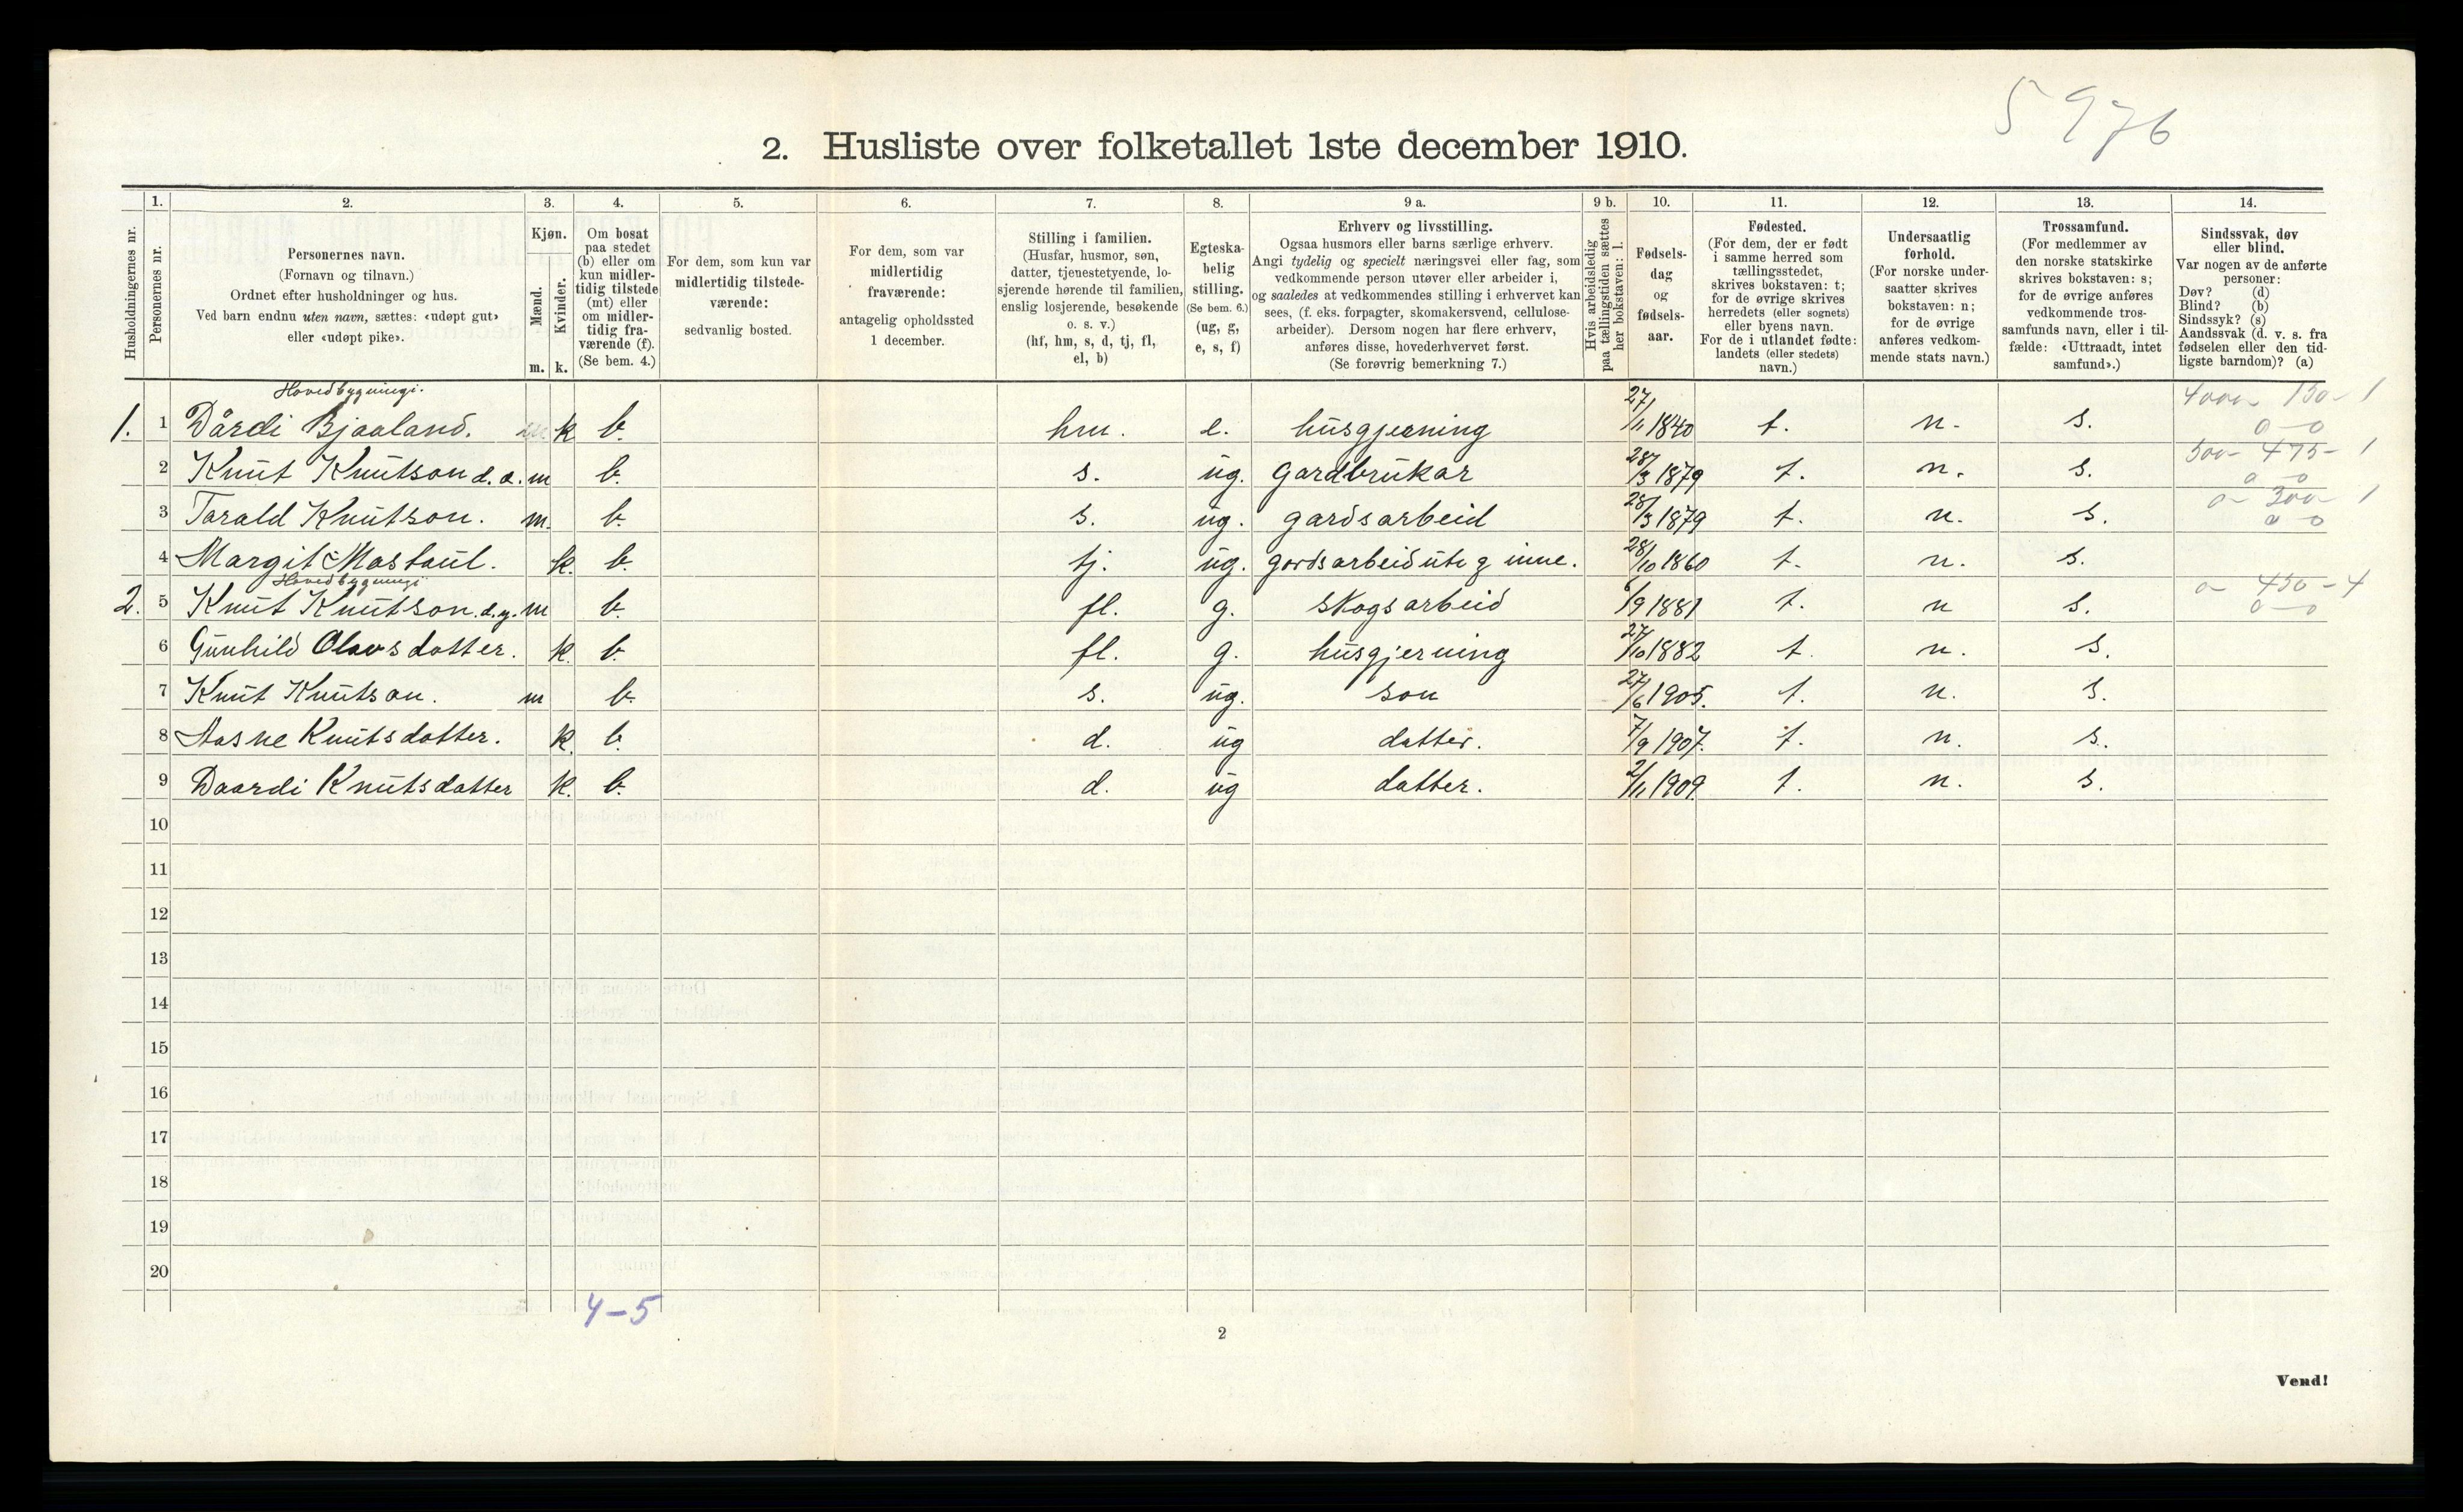 5976
2. Husliste over folketallet 1ste december 1910.
1. 2. 3. 4. 5. 6. 7. 8. 9 a. 9 b. 10. 11. 12. 13. 14.
Husholdningernes nr.
Personernes nr.
Personernes navn.
(Fornavn og tilnavn.)
Ordnet efter husholdninger og hus.
Ved barn endnu uten navn, sættes: «udøpt gut»
eller «udøpt pike».
Kjøn.
Mænd.
Kvinder.
m. k.
Om bosat
paa stedet
(b) eller om
kun midler-
tidig tilstede
(mt) eller
om midler-
tidig fra-
værende (f).
(Se bem. 4.)
For dem, som kun var
midlertidig tilstede-
værende:
sedvanlig bosted.
For dem, som var
midlertidig
fraværende:
antagelig opholdssted
1 december.
Stilling i familien.
(Husfar, husmor, søn,
datter, tjenestetyende, lo-
sjerende hørende til familien,
enslig losjerende, besøkende
o. s. v.)
(hf, hm, s, d, tj, fl,
el, b)
Egteska-
belig
stilling.
(Se bem. 6.)
(ug, g,
e, s, f)
Erhverv og livsstilling.
Ogsaa husmors eller barns særlige erhverv.
Angi tydelig og specielt næringsvei eller fag, som
vedkommende person utøver eller arbeider i,
og saaledes at vedkommendes stilling i erhvervet kan
sees, (f. eks. forpagter, skomakersvend, cellulose-
arbeider). Dersom nogen har flere erhverv,
anføres disse, hovederhvervet først.
(Se forøvrig bemerkning 7.)
Hvis arbeidsledig
paa tællingstiden sættes
her bokstaven: l.
Fødsels-
dag
og
fødsels-
aar.
Fødested.
(For dem, der er født
i samme herred som
tællingsstedet,
skrives bokstaven: t;
for de øvrige skrives
herredets (eller sognets)
eller byens navn.
For de i utlandet fødte:
landets (eller stedets)
navn.)
Undersaatlig
forhold.
(For norske under-
saatter skrives
bokstaven: n;
for de øvrige
anføres vedkom-
mende stats navn.)
Trossamfund.
(For medlemmer av
den norske statskirke
skrives bokstaven: s;
for de øvrige anføres
vedkommende tros-
samfunds navn, eller i til-
fælde: «Uttraadt, intet
samfund».)
Sindssvak, døv
eller blind.
Var nogen av de anførte
personer:
Døv? (d)
Blind? (b)
Sindssyk? (s)
Aandssvak (d. v. s. fra
fødselen eller den tid-
ligste barndom)? (a)
Hovedbygningi.
1. 1 Dårdi Bjaaland. k b. hm. e. husgjerning 27/11 1840 t. n. s. 4000 150-1
0-0
2 Knut Knutson d. e. m b. s. ug. gardbrukar 28/3 1879 t. n. s. 500- 475-1
0-0
3 Tarald Knutson. m. b. s. ug. gardsarbeid 28/3 1879 t. n. s. 0- 300-1
0-0
4 Margit Mastaul. k. b. tj. ug. gardsarbeid ute g inne. 28/10 1860 t. n. s.
Hovedbygningi
2. 5 Knut Knutson. d.y. m b. fl. g. skogsarbeid 6/9 1881 t. n s. 0- 450-4
0-0
6 Gunhild Olavsdotter. k. b. fl. g. husgjerning 27/10 1882 t. n. s.
7 Knut Knutson. m b. s. ug. son 27/6 1905. t. n. s.
8 Aasne Knutsdotter. k. b. d. ug datter. 7/9 1907. t. n. s.
9 Daardi Knutsdatter k. b. d. ug datter. 2/11 1909. t. n. s.
10
11
12
13
14
15
16
17
18
19
20
4-5
2
Vend!